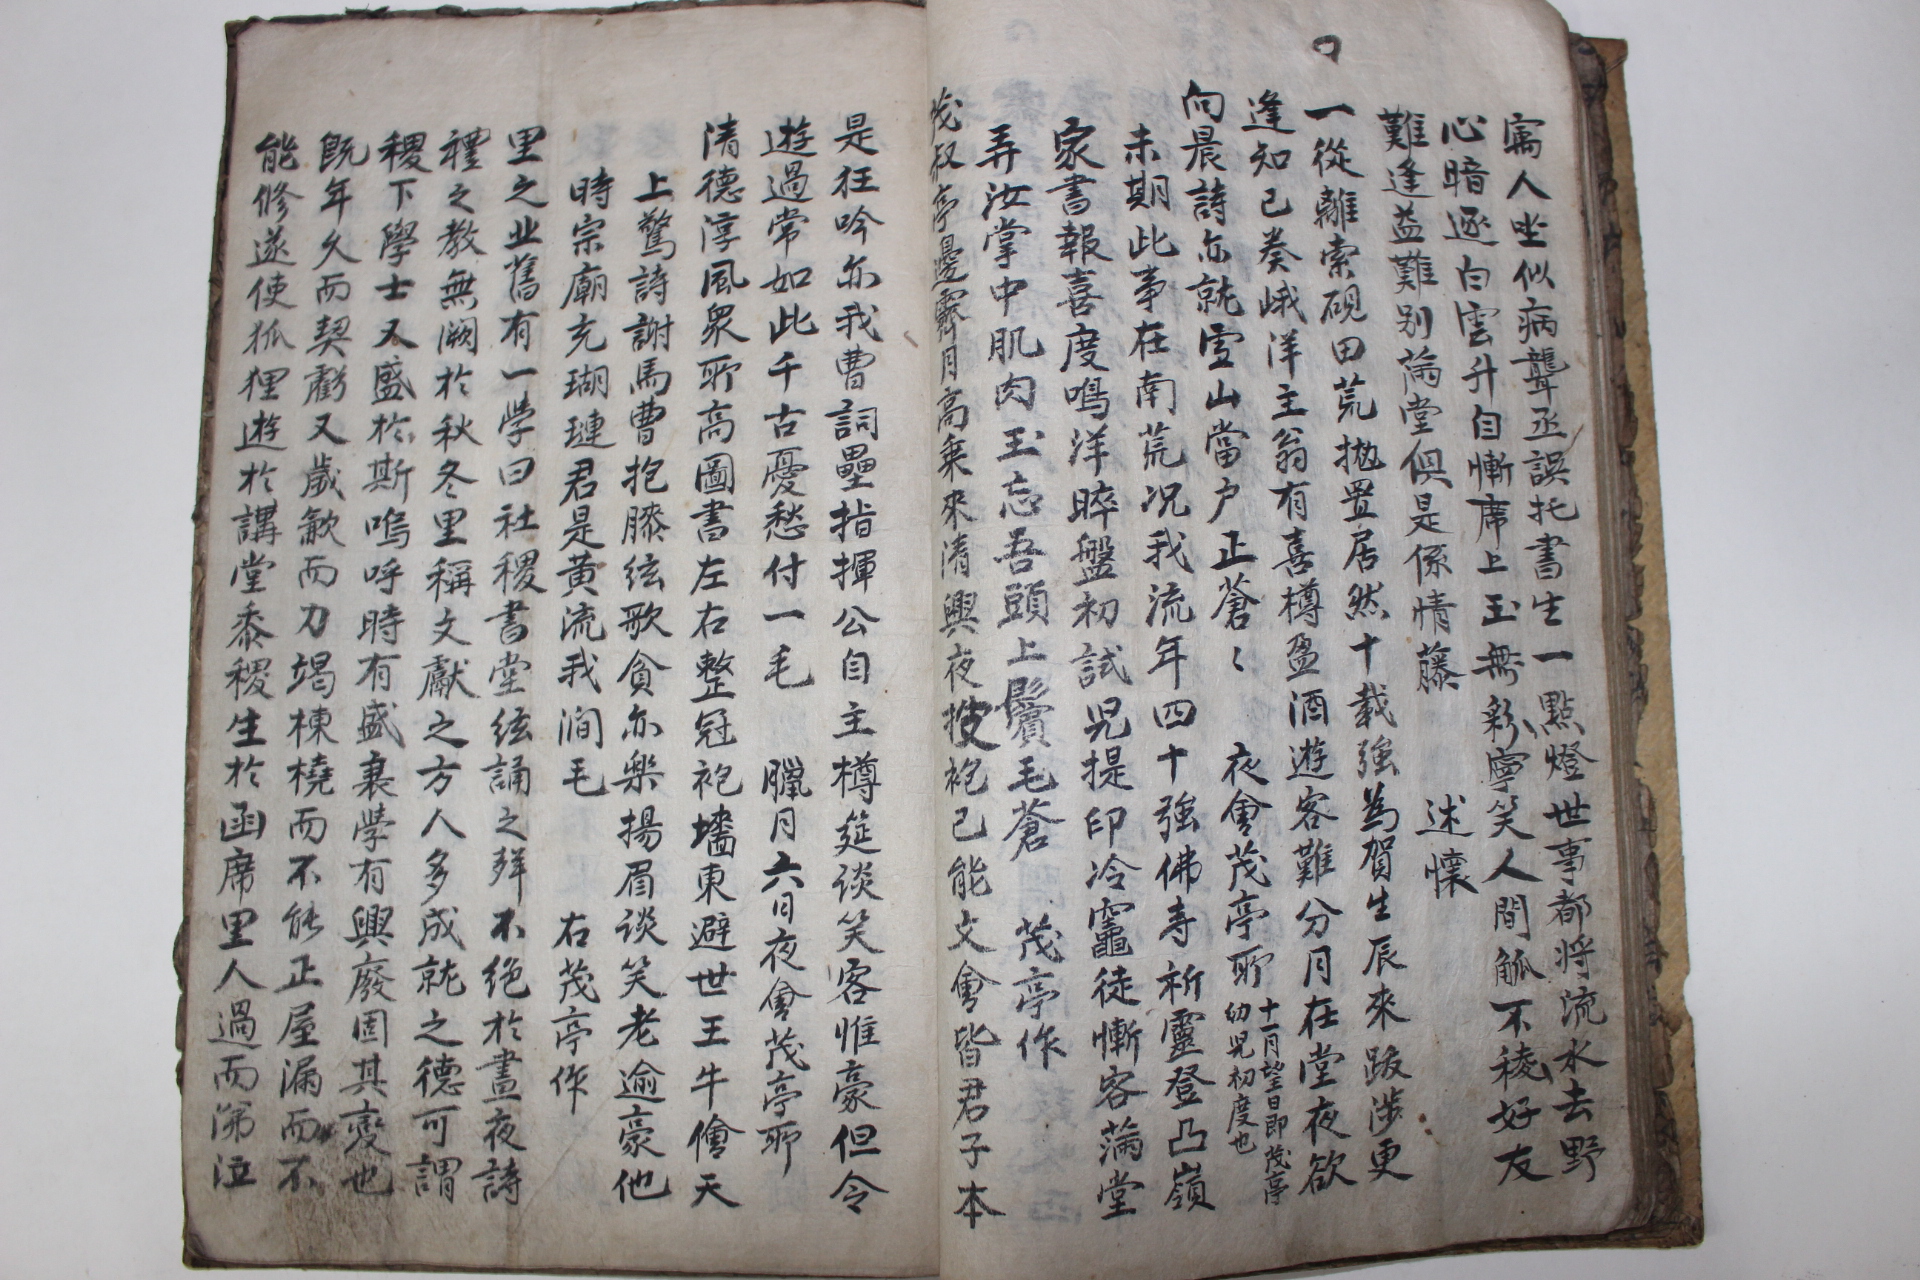 寓人坐似病聾丞誤托書生一點燈世事都將流水去野
心暗逐白雲升自慚席上玉無彩寧笑人間觚不稜好友
難逢益難別滿堂俱是係情藤 述懷
一從離索硯田荒拋置居然十載強為賀生辰來跋涉更
逢知己奏峨洋主翁有喜樽盈酒遊客難分月在堂夜欲
向晨詩亦就雪山當户正蒼〻 夜會茂亭所
十一月望日即茂亭
幼児初度也
未期此事在南荒况我流年四十強佛寺祈靈登凸嶺
家書報喜度鳴洋晬盤初試児提印冷竈徒慚客滿堂
弄汝掌中肌肉玉忘吾頭上鬢毛蒼 茂亭作
茂叔亭邊霽月高乘來清興夜披袍已能文會皆君子本
是狂吟亦我曹詞壘指揮公自主樽筵談笑客惟豪但令
遊過常如此千古憂愁付一毛 臘月六日夜會茂亭所
清德淳風衆所高圖書左右整冠袍墻東避世王牛儈天
上驚詩謝馬曹抱膝絃歌貪亦樂揚眉談笑老逾豪他
時宗廟充瑚璉君是黃流我澗毛 右茂亭作
里之北舊有一學曰社稷書堂絃誦之聲不絶於晝夜詩
禮之教無闕於秋冬里稱文獻之方人多成就之德可謂
稷下學士又盛於斯嗚呼時有盛衰學有興廢固其變也
旣年久而契虧又歲歉而力竭棟橈而不能正屋漏而不
能修遂使狐狸遊於講堂黍稷生於函席里人過而涕泣